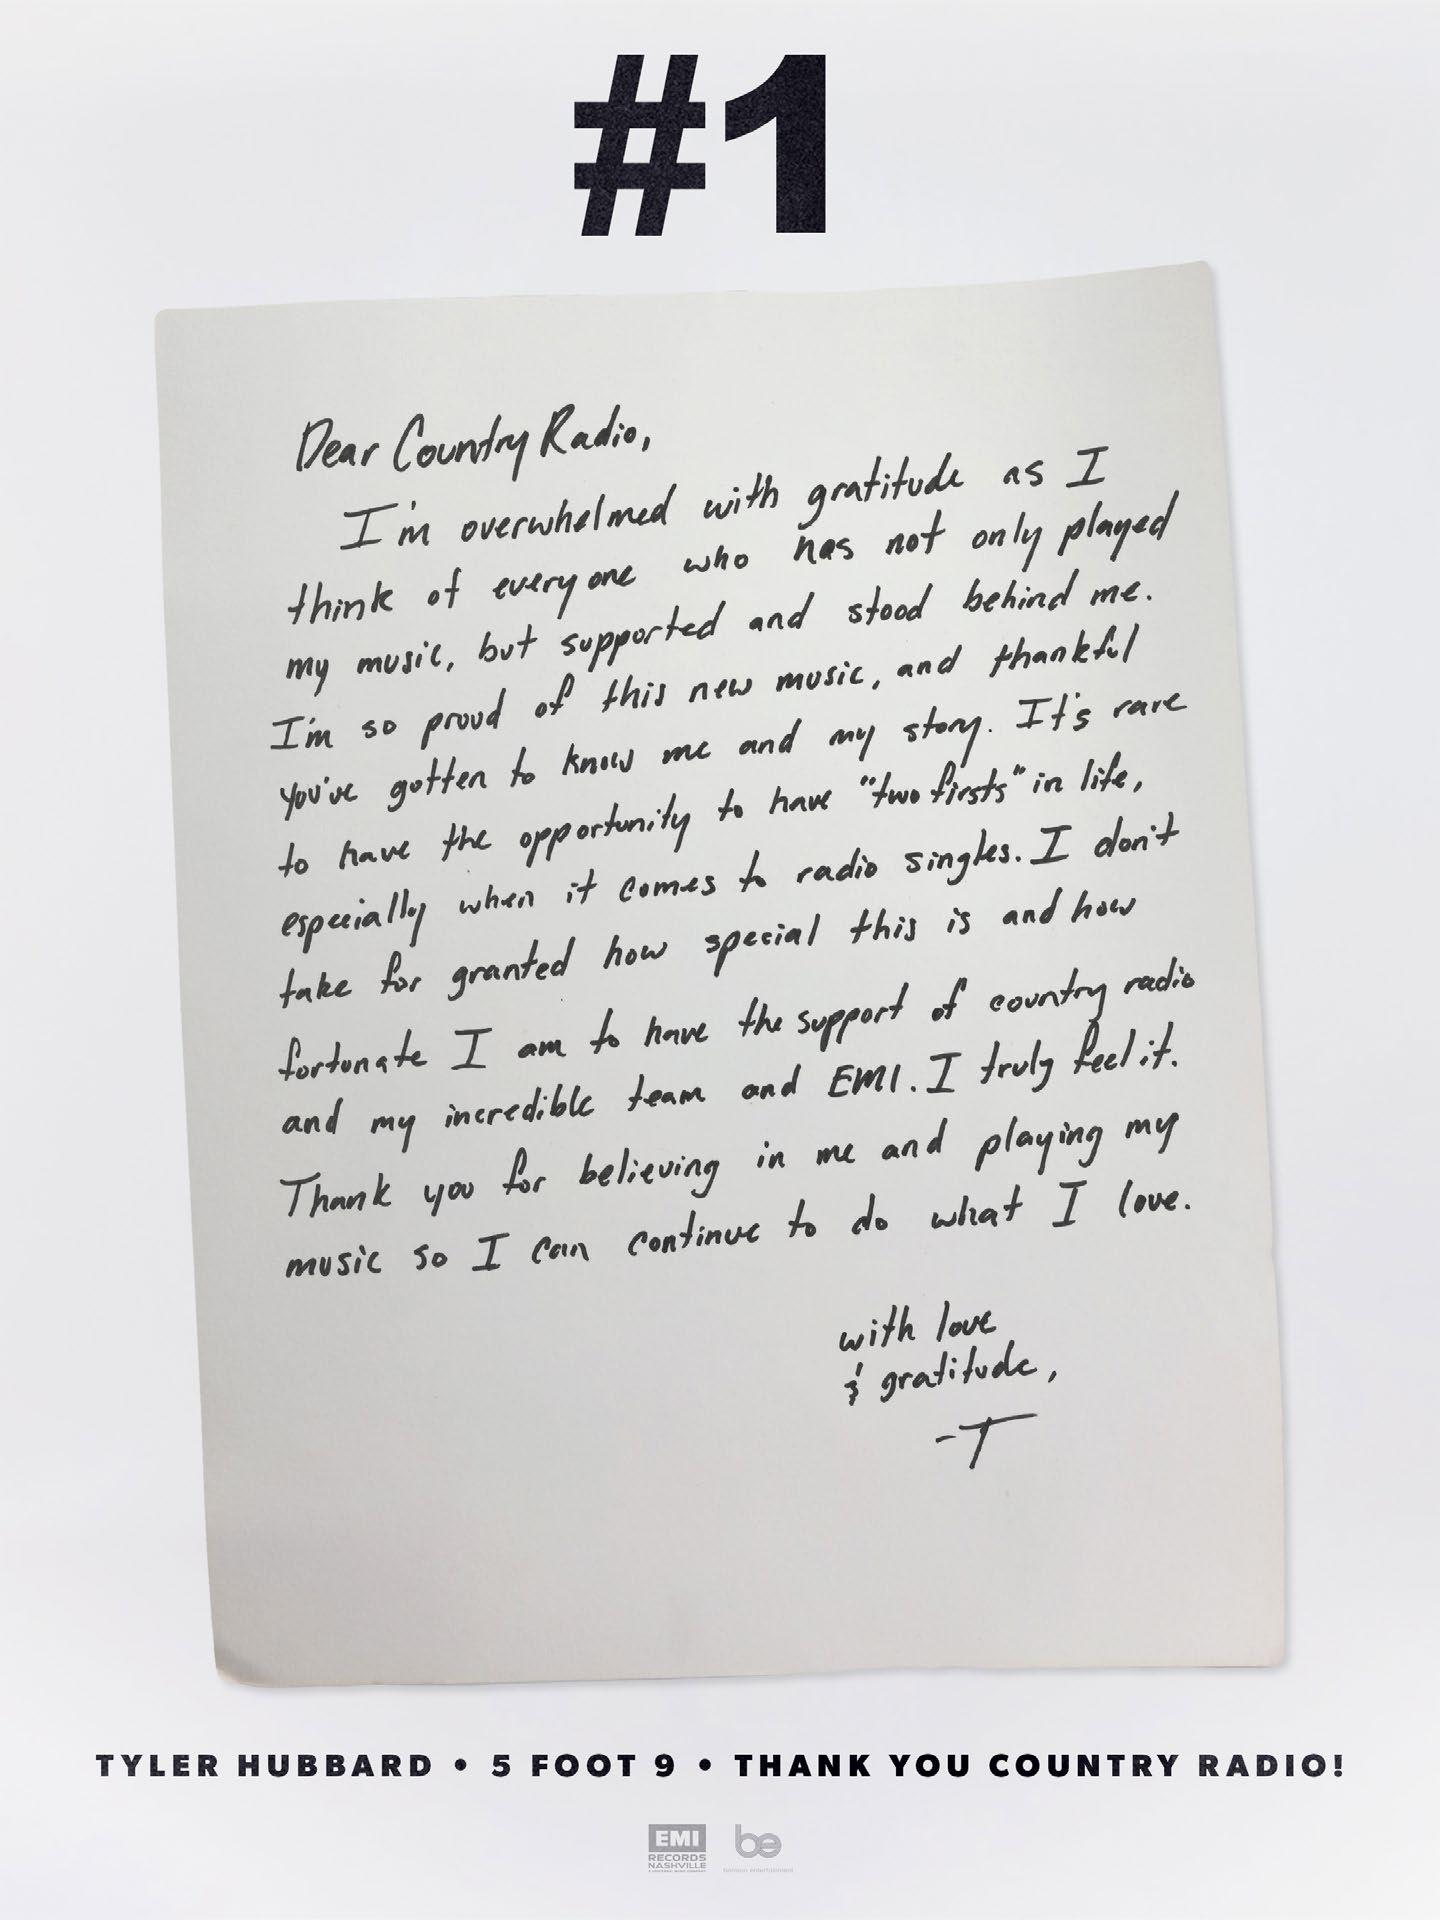 #1
Dear Country Radio,
I'm overwhelmed with gratitude as I
think of everyone who has not only played
my music, but supported and stood behind me.
I'm so proud of this new music, and thankful
you've gotten to know me and my story. It's rare
to have the opportunity to have "two firsts" in life,
especially when it comes to radio singles. I don't
take for granted how special this is and how
fortunate I am to have the support of country radio
and my incredible team and EMI. I truly feel it.
Thank you for believing in me and playing my
music so I can continue to do what I love.
with love
& gratitude,
-T
TYLER HUBBARD • 5 FOOT 9 • THANK YOU COUNTRY RADIO!
EMI
RECORDS
NASHVILLE
be